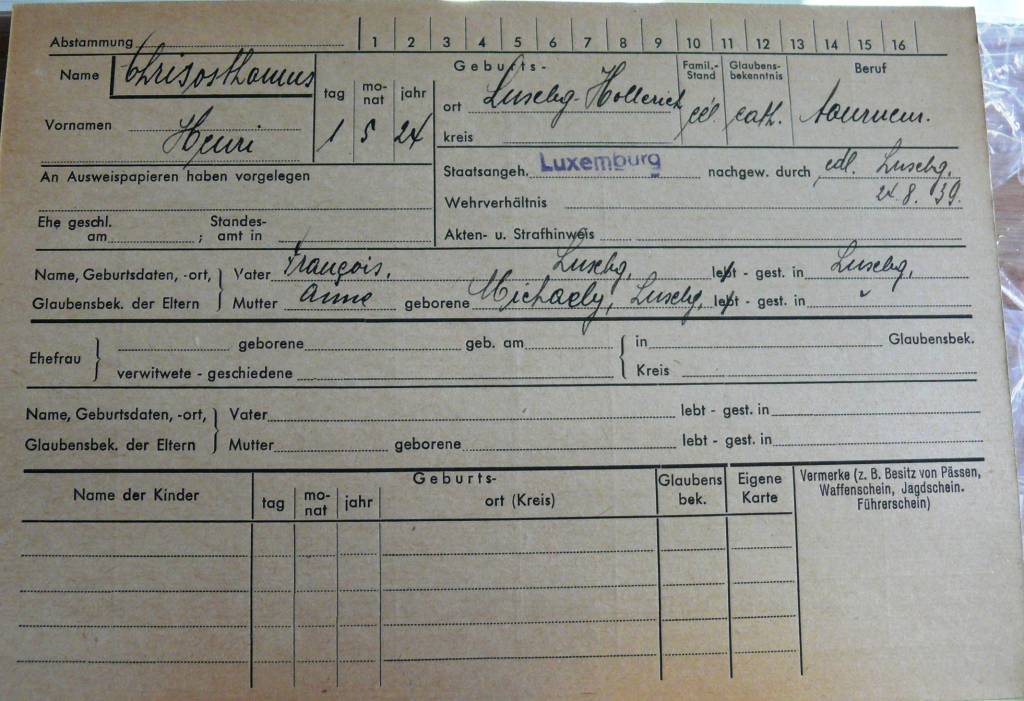 Abstammung 1 2 3 4 5 6 7 8 9 10 11 12 13 14 15 16
Name Chrisosthomus
Vornamen Henri
tag monat jahr
1 5 24
Geburts-
ort Luxbg-Hollerich
kreis
Famil.-Stand
Glaubens-bekenntnis cath.
Beruf
An Ausweispapieren haben vorgelegen
Staatsangeh. Luxemburg nachgew. durch Luxbg.
24.8.39.
Wehrverhältnis
Ehe geschl. am ; Standes-amt in
Akten- u. Strafhinweis
Name, Geburtsdaten, -ort, Vater François, Luxbg, lebt - gest. in Luxbg,
Glaubensbek. der Eltern Mutter Anne geborene Michaely, Luxbg, lebt - gest. in "
Ehefrau geborene geb. am in Glaubensbek.
verwitwete - geschiedene Kreis
Name, Geburtsdaten, -ort, Vater lebt - gest. in
Glaubensbek. der Eltern Mutter geborene lebt - gest. in
Name der Kinder
Geburts-
tag monat jahr ort (Kreis)
Glaubens bek.
Eigene Karte
Vermerke (z. B. Besitz von Pässen,
Waffenschein, Jagdschein.
Führerschein)